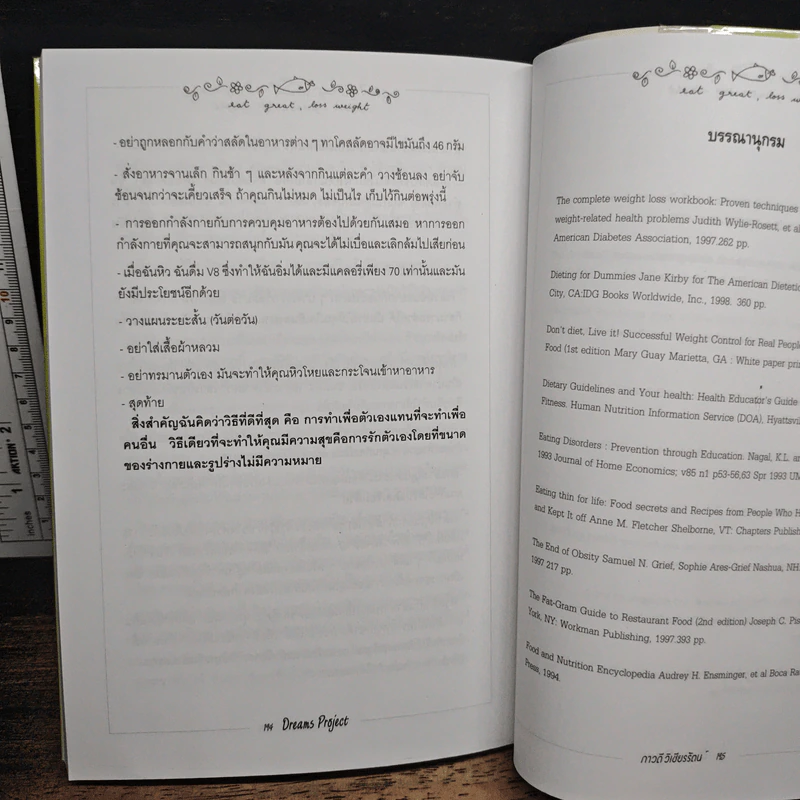 eat great, loss weight
- อย่าถูกหลอกกับคำว่าสลัดในอาหารต่าง ๆ ทาโคสลัดอาจมีไขมันถึง 46 กรัม
- สั่งอาหารจานเล็ก กินช้า ๆ และหลังจากกินแต่ละคำ วางช้อนลง อย่าจับ
ช้อนจนกว่าจะเคี้ยวเสร็จ ถ้าคุณกินไม่หมด ไม่เป็นไร เก็บไว้กินต่อพรุ่งนี้
- การออกกำลังกายกับการควบคุมอาหารต้องไปด้วยกันเสมอ หาการออก
กำลังกายที่คุณจะสามารถสนุกกับมัน คุณจะได้ไม่เบื่อและเลิกล้มไปเสียก่อน
- เมื่อฉันหิว ฉันดื่ม V8 ซึ่งทำให้ฉันอิ่มได้และมีแคลอรี่เพียง 70 เท่านั้นและมัน
ยังมีประโยชน์อีกด้วย
- วางแผนระยะสั้น (วันต่อวัน)
- อย่าใส่เสื้อผ้าหลวม
- อย่าทรมานตัวเอง มันจะทำให้คุณหิวโหยและกระโจนเข้าหาอาหาร
- สุดท้าย
สิ่งสำคัญฉันคิดว่าวิธีที่ดีที่สุด คือ การทำเพื่อตัวเองแทนที่จะทำเพื่อ
คนอื่น วิธีเดียวที่จะทำให้คุณมีความสุขคือการรักตัวเองโดยที่ขนาด
ของร่างกายและรูปร่างไม่มีความหมาย
194 Dreams Project
eat great, loss w
บรรณานุกรม
The complete weight loss workbook: Proven techniques
weight-related health problems Judith Wylie-Rosett, et al
American Diabetes Association, 1997.262 pp.
Dieting for Dummies Jane Kirby for The American Dieteti
City, CA:IDG Books Worldwide, Inc., 1998. 360 pp.
Don't diet, Live it! Successful Weight Control for Real People
Food (1st edition Mary Guay Marietta, GA : White paper pri
Dietary Guidelines and Your health: Health Educator's Guide
Fitness. Human Nutrition Information Service (DOA), Hyattsvil
Eating Disorders : Prevention through Education. Nagal, K.L. an
1993 Journal of Home Economics; v85 n1 p53-56,63 Spr 1993 UM
Eating thin for life: Food secrets and Recipes from People Who H
and Kept It off Anne M. Fletcher Shelborne, VT: Chapters Publish
The End of Obsity Samuel N. Grief, Sophie Ares-Grief Nashua, NH
1997 217 pp.
The Fat-Gram Guide to Restaurant Food (2nd edition) Joseph C. Pis
York, NY: Workman Publishing, 1997.393 pp.
Food and Nutrition Encyclopedia Audrey H. Ensminger, et al Boca Ra
Press, 1994.
ภาวดี วิเชียรรัตน์ 195